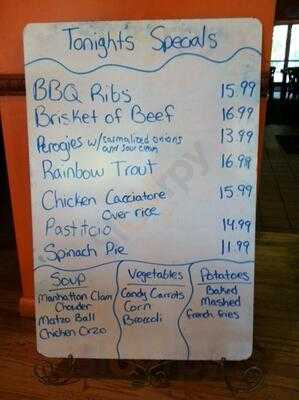 Tonights Specials
BBQ Ribs 15.99
Brisket of Beef 16.99
Perogies w/ carmalized onions 13.99
and sour cream
Rainbow Trout 16.99
Chicken Cacciatore 15.99
over rice
Pastitcio 14.99
Spinach Pie 11.99
Soup
Manhattan Clam
Chowder
Matzo Ball
Chicken Orzo
Vegetables
Candy Carrots
Corn
Broccoli
Potatoes
Baked
Mashed
french fries